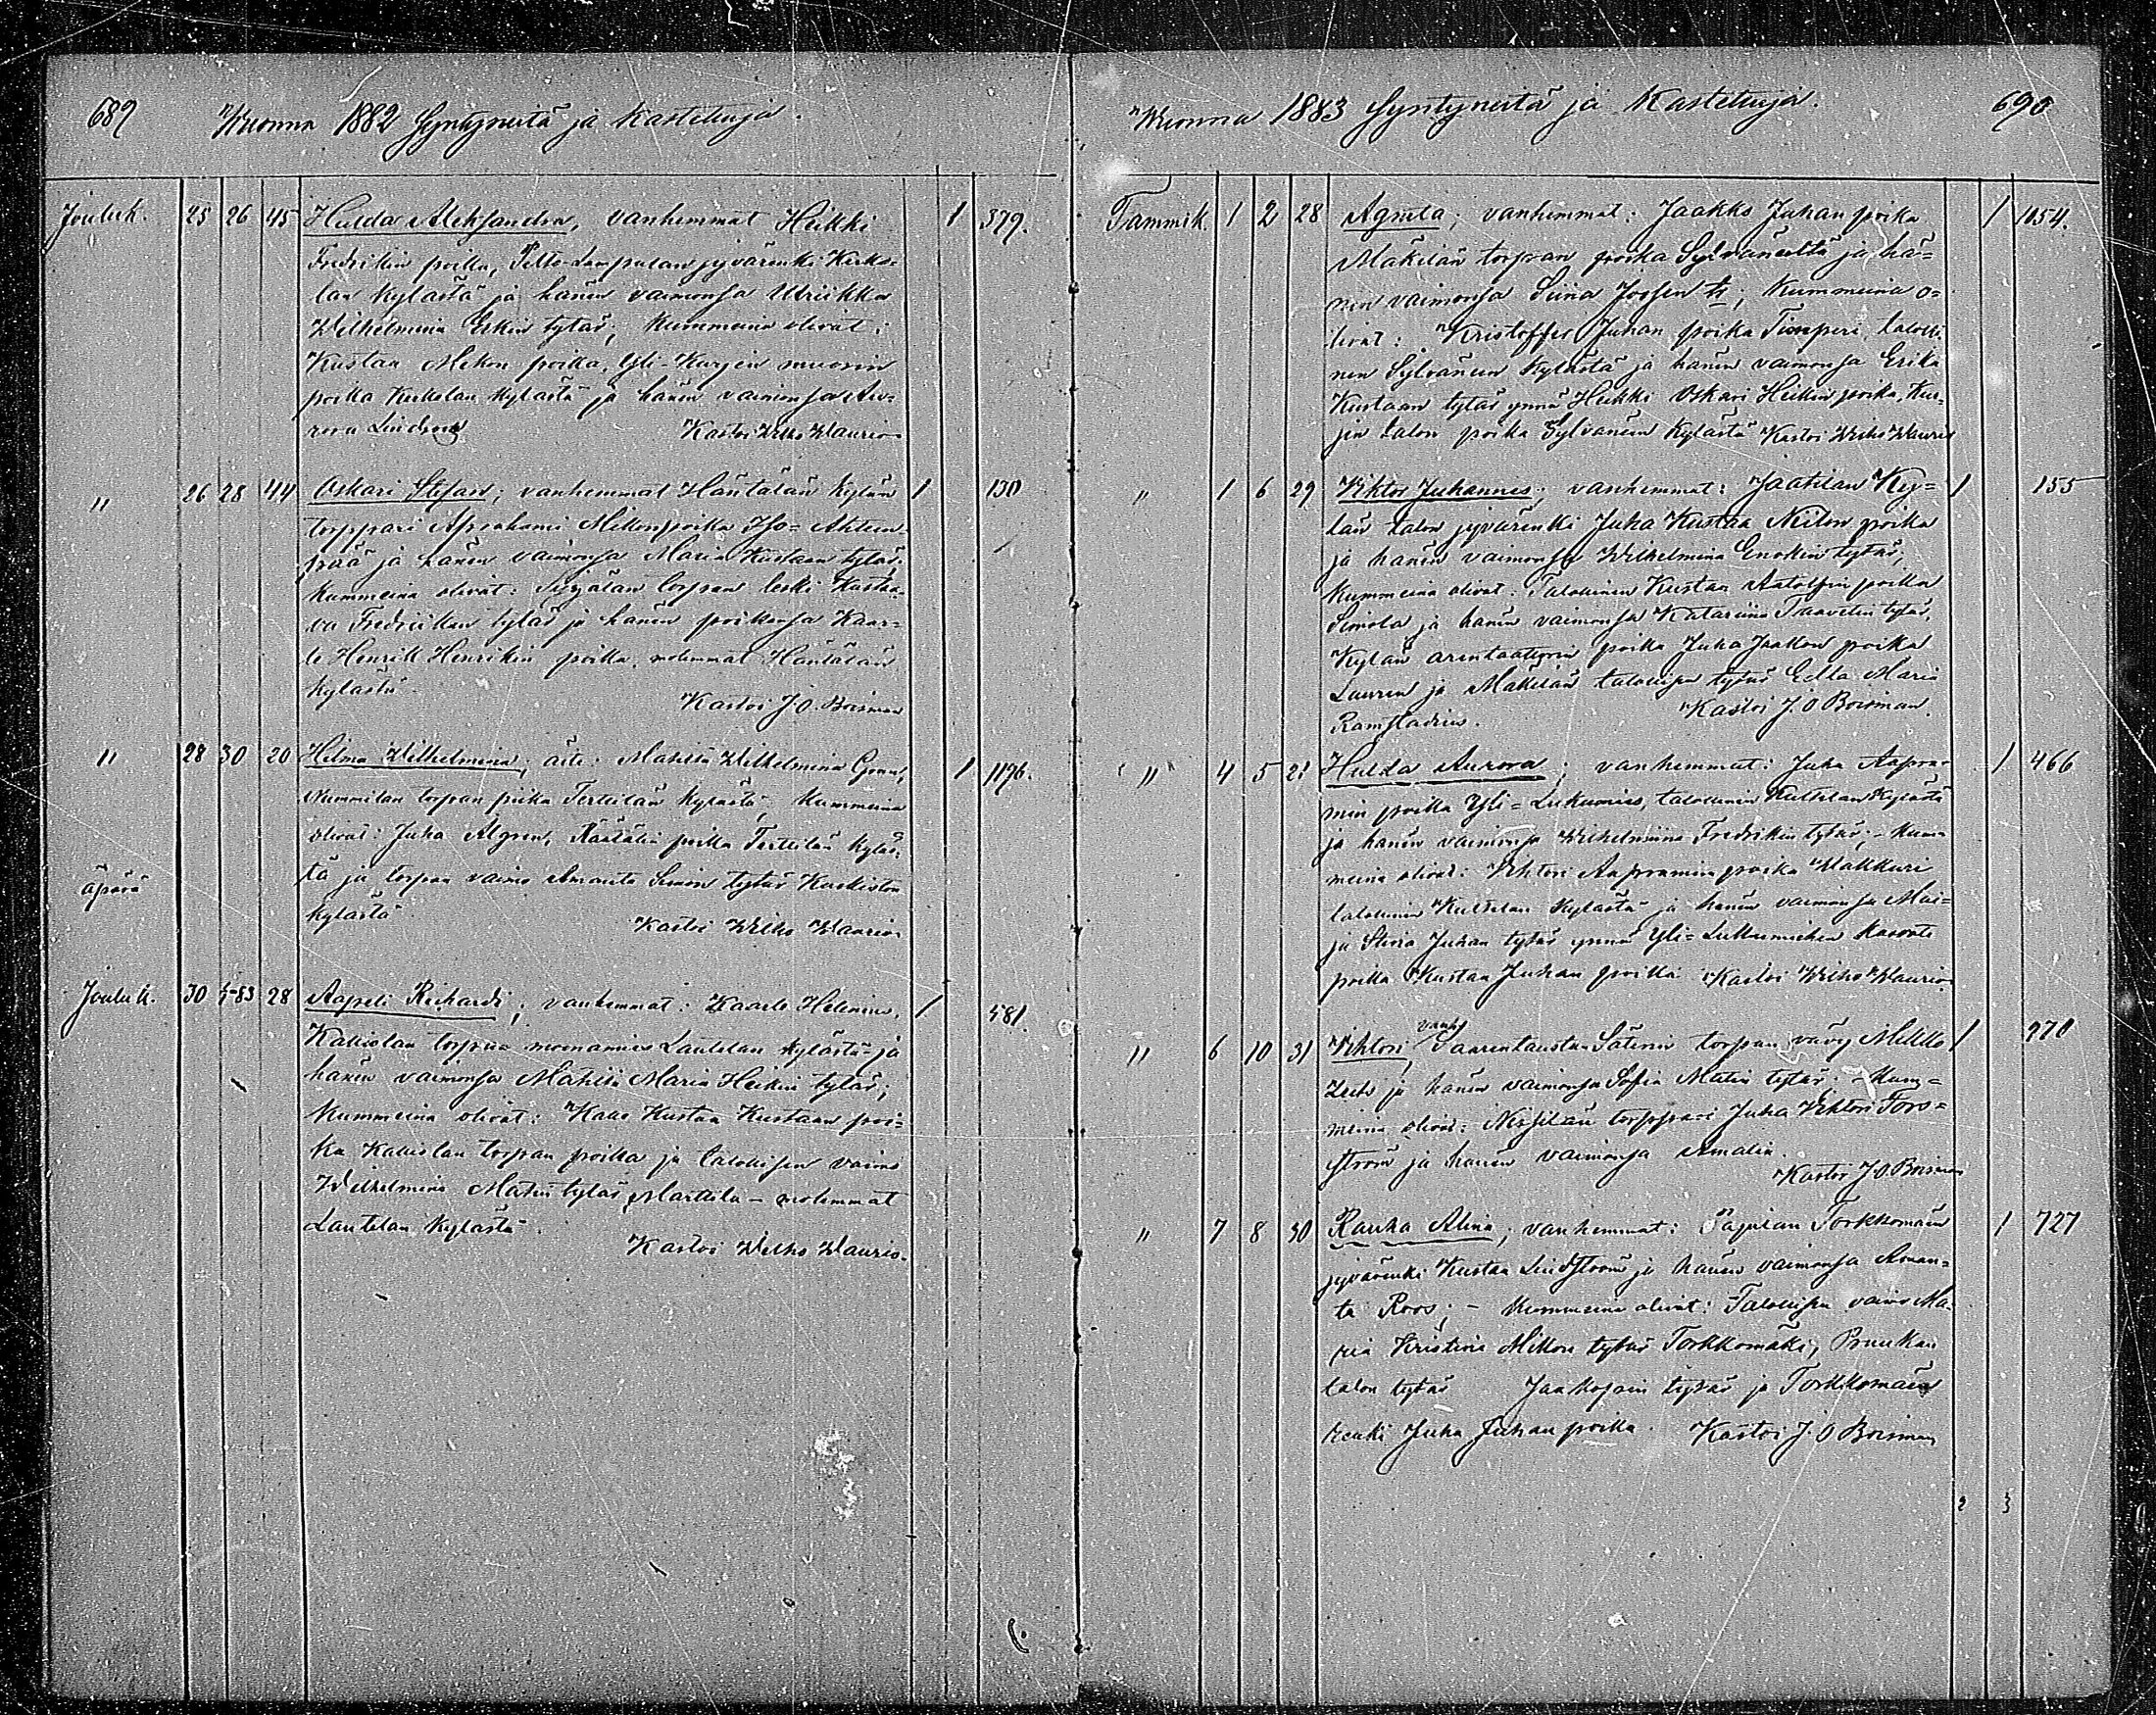 689 Wuonna 1882 Syntyneitä ja Kastettuja.
Jouluk. 25 26 45 Hulda Aleksandra, vanhemmat Heikki 1 379.
Fredrikin poika, Pelto-Lempulan jyvärenki Kirko=
lan kylästä ja hänen vaimonsa Ulriikka
Wilhelmina Erkin tytär; Kummeina olivat:
Kustaa Mikon poika, Yli-Kurjen muorin
poika Kirkolan kylästä ja hänen vaimonsa Au=
rora Lindroos Kastoi Wilho Waurio
" 26 28 44 Oskari Stefan; vanhemmat Häntälän kylän 1 130
torppari Aprahami Mikonpoika Iso=Ahteen
pää ja hänen vaimonsa Maria Kustaan tytär.
Kummeina olivat: Syrjälän torpan leski Kustaa=
va Fredriikan tytär ja hänen poikansa Kaar=
le Henrik Henrikin poika, molemmat Häntälän
kylästä. Kastoi J. O. Boisman
" 28 30 20 Hilma Wilhelmina; äiti: Matilta Wilhelmina 1 1196.
Nummilan torpan piika Terttilän kylästä; Kummeina
olivat: Juha Algren, Räätälin poika Terttilän kyläs=
äpärä tä ja torpan vaimo Amanta Simon tytär Kuskiston
kylästä. Kastoi Wilho Waurio
Jouluk. 30 1/1-83 28 Aapeli Richardi; vanhemmat: Kaarle Helenius, 1 581.
Kakiolan torpan muonamies Lautelan kylästä ja
hänen vaimonsa Matilta Maria Heikin tytär;
Kummeina olivat: Kaas Kustaa Kustaan poi=
ka Kakiolan torpan poika ja talollisen vaimo
Wilhelmina Matin tytär Marttila - molemmat
Lautelan kylästä.
Kastoi Wilho Waurio.
Wuonna 1883 Syntyneitä ja Kastettuja. 690
Tammik. 1 2 28 Agneta; vanhemmat: Jaakko Juhan poika 1 1054.
Mäkilän torpan poika Sylvänältä ja hä=
nen vaimonsa Siina Joosen tr; Kummeina o=
livat: Kristoffer Juhan poika Timperi, talolli=
nen Sylvänän kylästä ja hänen vaimonsa Erika
Kustaan tytär ynnä Heikki Oskari Heikin poika, Kur=
jen talon poika Sylvänän kylästä Kastoi Wilho Waurio
" 1 6 29 Viktor Juhannes; vanhemmat: Jaatilan Ky= 1 155
län talon jyvärenki Juha Kustaa Neilon poika
ja hänen vaimonsa Wilhelmina Enokin tytär;
Kummeina olivat: Talollinen Kustaa Aatolfin poika
Simola ja hänen vaimonsa Katariina Taavetin tytär,
Kylän arentaatorin poika Juha Jaakon poika
Lauren ja Mäkilän talollisen tytär Edla Maria
Ramstadius. Kastoi J. O Boisman.
" 4 5 21 Hulda Aurora; vanhemmat: Juha Aapra= 1 466
min poika Yli=Liukumies, talollinen Kultelan kylästä
ja hänen vaimonsa Wilhelmiina Fredrikin tytär; - Kum=
meina olivat: Vihtori Aapramin poika Wakkuri
talollinen Kultelan kylästä ja hänen vaimonsa Mai=
ja Stiina Juhan tytär ynnä Yli=Liukumiehen kasvatti
poika Kustaa Juhan poika Kastoi Wilho Waurio
" 6 10 31 Vihtori, vanh. Saarentaustan Säterin torpan vävy Mikko 1 270
ja hänen vaimonsa Sofia Matin tytär; - Kum=
meina olivat: Nissilän torppari Juha Vihtori Fors=
ström ja hänen vaimonsa Amalia.
Kastoi J. O. Boisman
" 7 8 30 Rauha Alina; vanhemmat: Pajulan Torkkomäen 1 727
jyvärenki Kustaa Lindström ja hänen vaimonsa Aman=
ta Roos; - Kummeina olivat: Talollisen vaimo Ma=
ria Kristina Mikon tytär Torkkomäki, Pruukan
talon tytär Jaakopin tytär ja Torkkomäen
renki Juha Juhan poika. Kastoi J. O Boisman
2 3